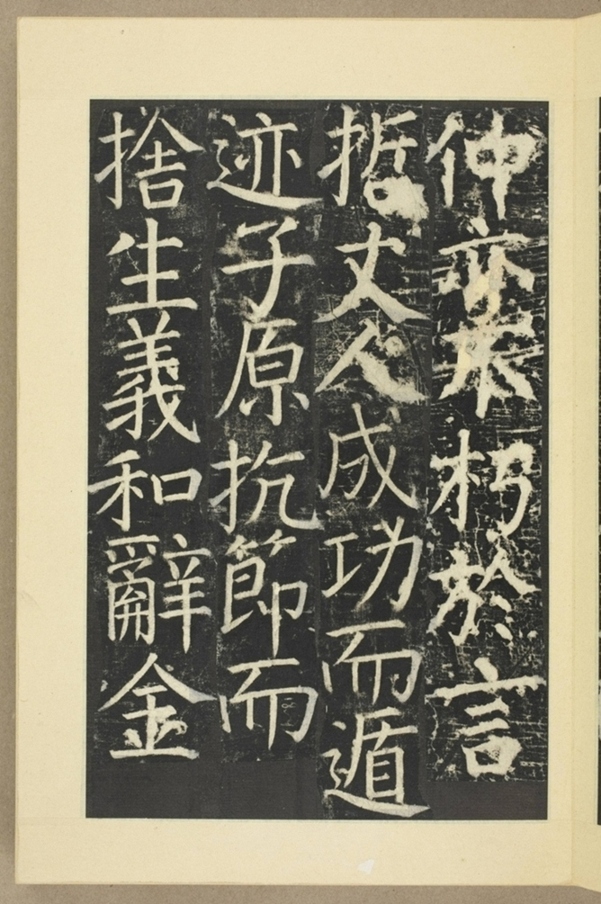 仲亦不朽於言
哲丈人成功而遁
迹子原抗節而
捨生義和辭金